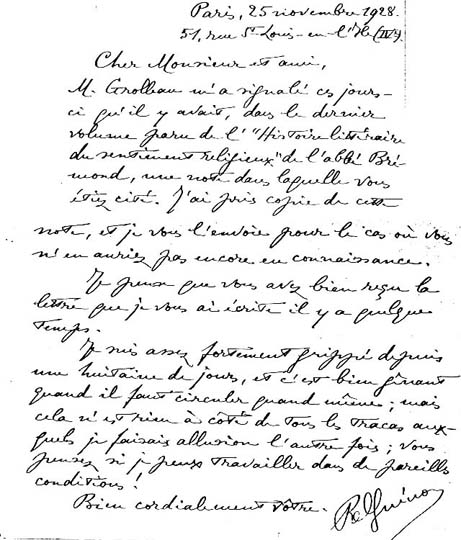 Paris, 25 novembre 1928.
51, rue St Louis-en l'Ile (IVe)
Cher Monsieur et ami,
M. Grolleau m'a signalé ces jours-
ci qu'il y avait, dans le dernier
volume paru de l'"Histoire littéraire
du sentiment religieux" de l'abbé Bré-
mond, une note dans laquelle vous
étiez cité. J'ai pris copie de cette
note, et je vous l'envoie pour le cas où vous
n'en auriez pas encore eu connaissance.
Je pense que vous avez bien reçu la
lettre que je vous ai écrite il y a quelque
temps.
Je suis assez fortement grippé depuis
une huitaine de jours, et c'est bien gênant
quand il faut circuler quand même ; mais
cela n'est rien à côté de tous les tracas aux-
quels je faisais allusion l'autre fois ; vous
pensez si je peux travailler dans de pareilles
conditions !
Bien cordialement vôtre.
René Guénon